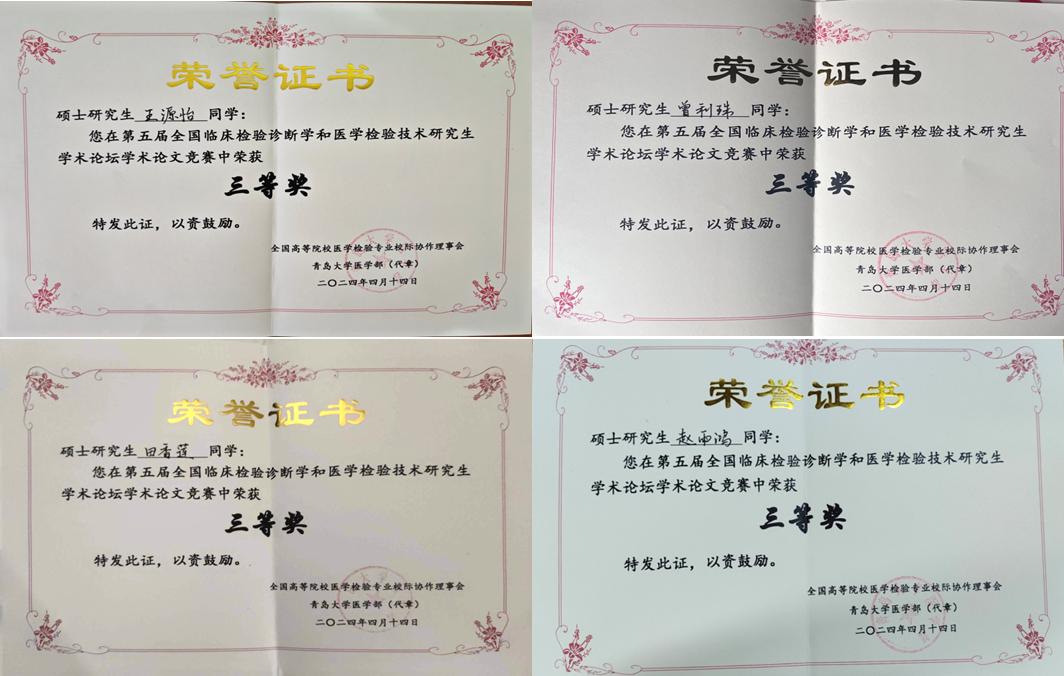 荣誉证书
硕士研究生 王源怡 同学：
您在第五届全国临床检验诊断学和医学检验技术研究生
学术论坛学术论文竞赛中荣获
三等奖
特发此证，以资鼓励。
全国高等院校医学检验专业校际协作理事会
青岛大学医学部（代章）
二〇二四年四月十四日
荣誉证书
硕士研究生 曾利珠 同学：
您在第五届全国临床检验诊断学和医学检验技术研究生
学术论坛学术论文竞赛中荣获
三等奖
特发此证，以资鼓励。
全国高等院校医学检验专业校际协作理事会
青岛大学医学部（代章）
二〇二四年四月十四日
荣誉证书
硕士研究生 田香莲 同学：
您在第五届全国临床检验诊断学和医学检验技术研究生
学术论坛学术论文竞赛中荣获
三等奖
特发此证，以资鼓励。
全国高等院校医学检验专业校际协作理事会
青岛大学医学部（代章）
二〇二四年四月十四日
荣誉证书
硕士研究生 赵雨鸿 同学：
您在第五届全国临床检验诊断学和医学检验技术研究生
学术论坛学术论文竞赛中荣获
三等奖
特发此证，以资鼓励。
全国高等院校医学检验专业校际协作理事会
青岛大学医学部（代章）
二〇二四年四月十四日